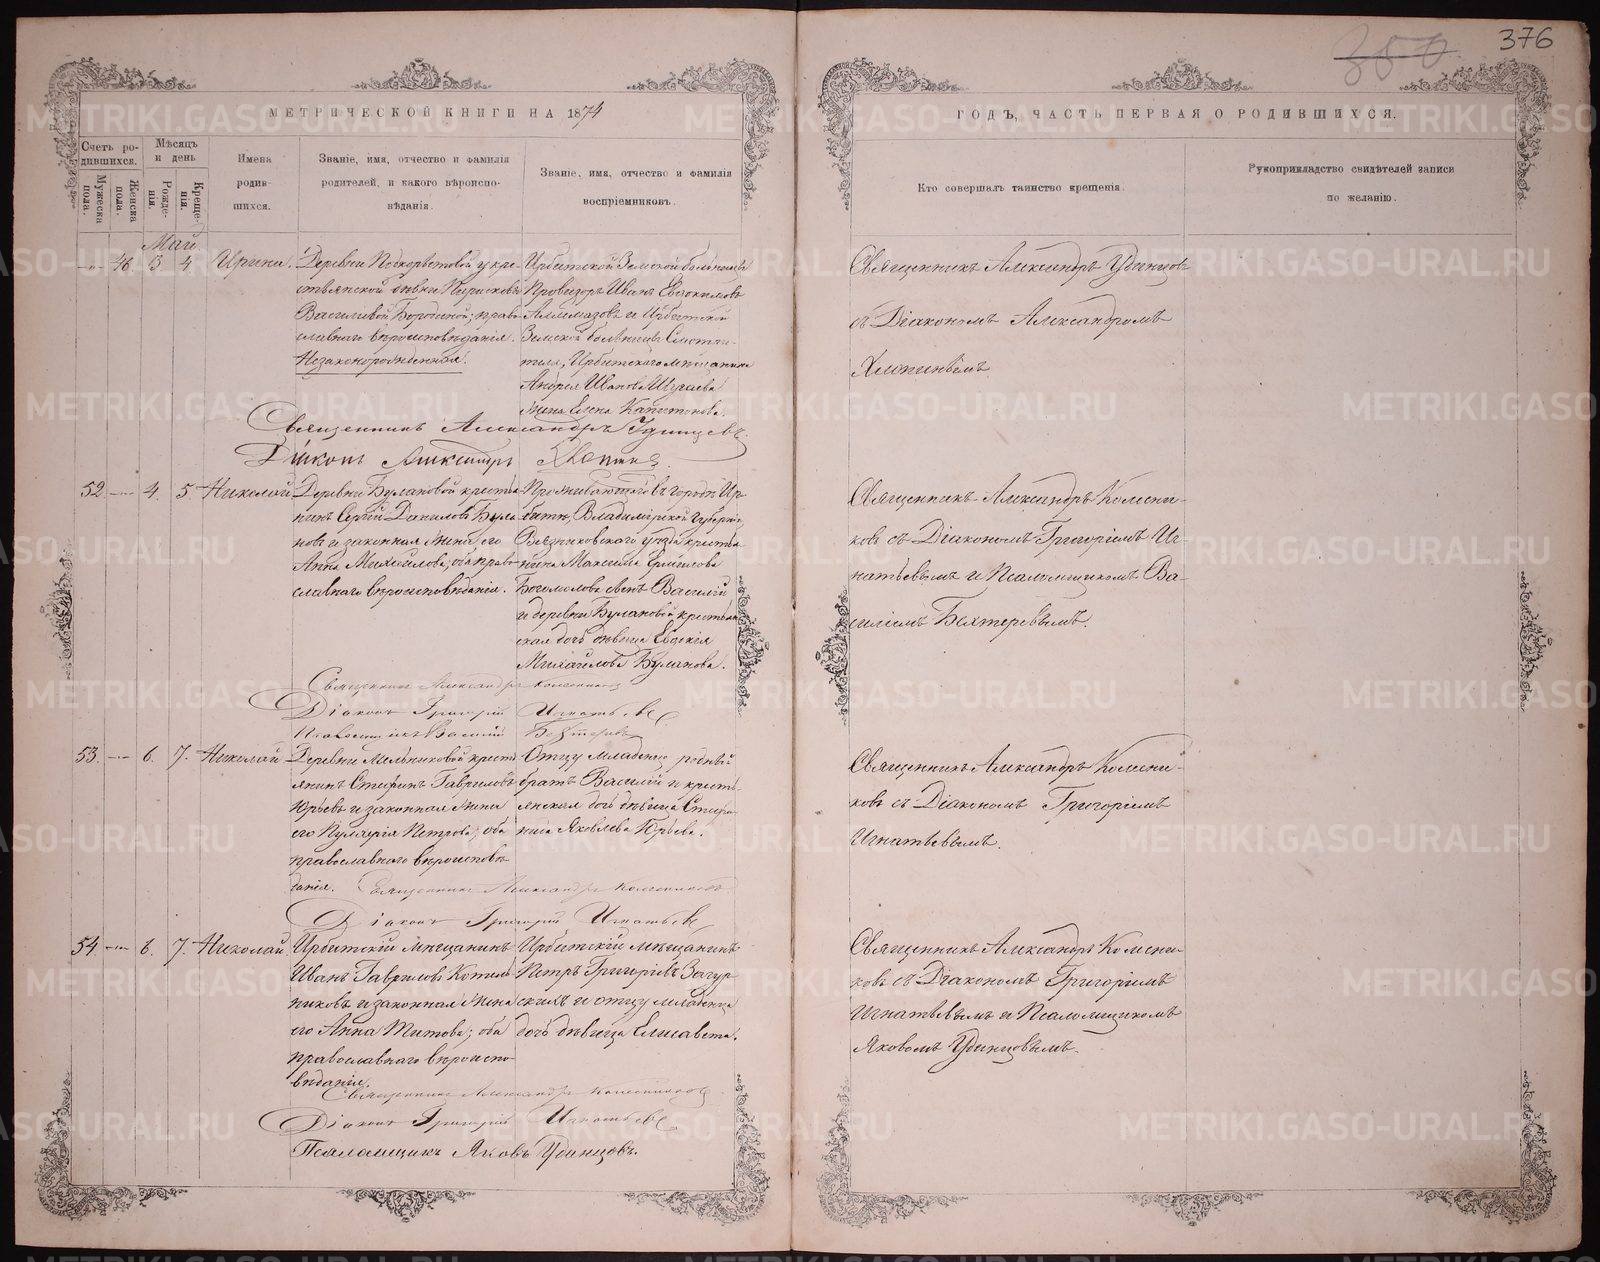 350 376
МЕТРИЧЕСКОЙ КНИГИ НА 1874
ГОДЪ, ЧАСТЬ ПЕРВАЯ О РОДИВШИХСЯ.
Счетъ ро-
дившихся.
Мужеска
пола.
Женска
пола.
Мѣсяцъ
и день
Рожде-
нія.
Креще-
нія.
Имена
родив-
шихся.
Званіе, имя, отчество и фамилія
родителей, и какого вѣроиспо-
вѣданія.
Званіе, имя, отчество и фамилія
воспріемниковъ.
Кто совершалъ таинство крещенія.
Рукоприкладство свидѣтелей записи
по желанію.
Май.
46 3 4 Ирина.
Деревни у кре-
стьянской дѣвки
Васильевой Бородиной; право-
славнаго вѣроисповѣданія.
Незаконорожденная.
Ирбитской Земской больницы
Провизоръ Иванъ Евдокимовъ
и Ирбитской
Земской больницы Смотри-
теля, Ирбитскаго мѣщанина
Андрея Иванова
жена Елена Капитонова.
Священникъ Александръ Удинцовъ
съ Діакономъ Александромъ
Священникъ Александръ Удинцевъ.
Діаконъ Александръ
52 — 4. 5 Николай
Деревни Булановой кресть-
нинъ Сергій Даниловъ Була-
новъ и законная жена его
Анна Михайлова; оба право-
славнаго вѣроисповѣданія.
Проживающаго въ городѣ Ир-
битѣ, Владимірской Губерніи,
Вязниковскаго уѣзда кресть-
нина Максима Ермилова
Богомолова сынъ Василій
и деревни Булановой крестьян-
ская дочь дѣвица Евдокія
Михайлова Буланова.
Священникъ Александръ Колесни-
ковъ съ Діакономъ Григоріемъ Иг-
натьевымъ и Псаломщикомъ Ва-
силіемъ Бехтеревымъ.
Священникъ Александръ Колесников
Діаконъ Григорій Игнатьевъ
Псаломщикъ Василій Бехтеревъ
53. — 6. 7. Николай
Деревни Мельниковой кресть-
янинъ Стефанъ Гавриловъ
Юрьевъ и законная жена
его Пулхерія Петрова; оба
православнаго вѣроисповѣ-
данія.
Отцу младенца родный
братъ Василій и кресть-
янская дочь дѣвица Стефа-
нида Яковлева Юрьева.
Священникъ Александръ Колесни-
ковъ съ Діакономъ Григоріемъ
Игнатьевымъ.
Священникъ Александръ Колесниковъ
Діаконъ Григорій Игнатьевъ
54 — 6. 7. Николай
Ирбитскій мѣщанинъ
Иванъ Гавриловъ Котель-
никовъ и законная жена
его Анна Титова; оба
православнаго вѣроиспо-
вѣданія.
Ирбитскій мѣщанинъ
Петръ Григорьевъ Загур-
скихъ и отцу младенца
дочь дѣвица Елисавета.
Священникъ Александръ Колесни-
ковъ съ Діакономъ Григоріемъ
Игнатьевымъ и Псаломщикомъ
Яковомъ Удинцовымъ.
Священникъ Александръ Колесниковъ
Діаконъ Григорій Игнатьевъ
Псаломщикъ Яковъ Удинцовъ.
METRIKI.GASO-URAL.RU